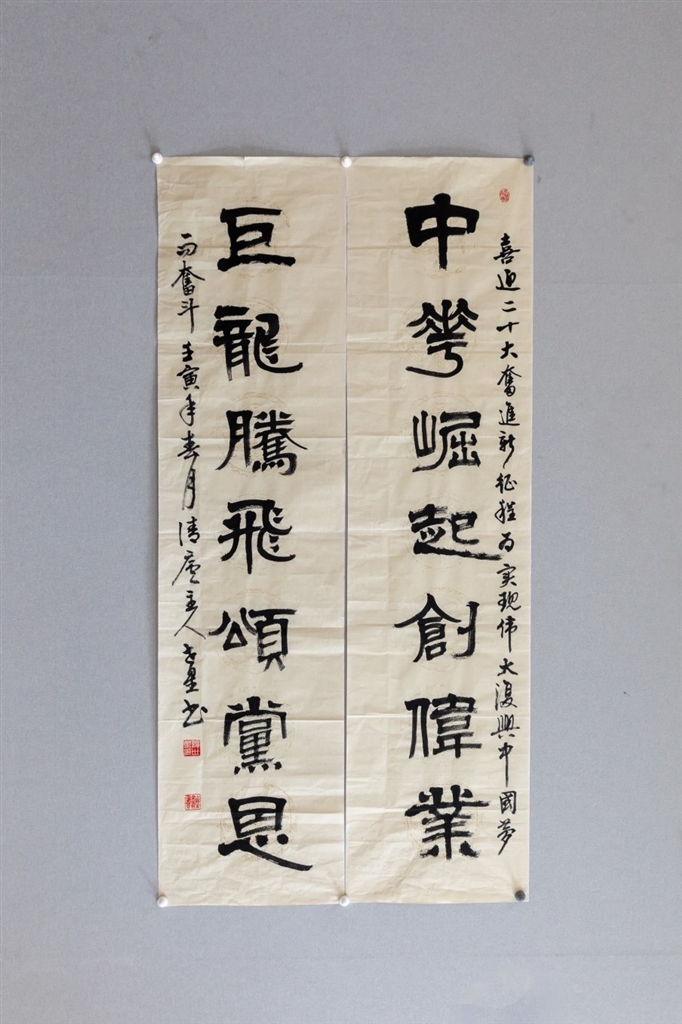 喜迎二十大奮進新征程为实现伟大復興中國夢
中華崛起創偉業
巨龍騰飛頌黨恩
而奮斗 壬寅年春月清廬主人星书